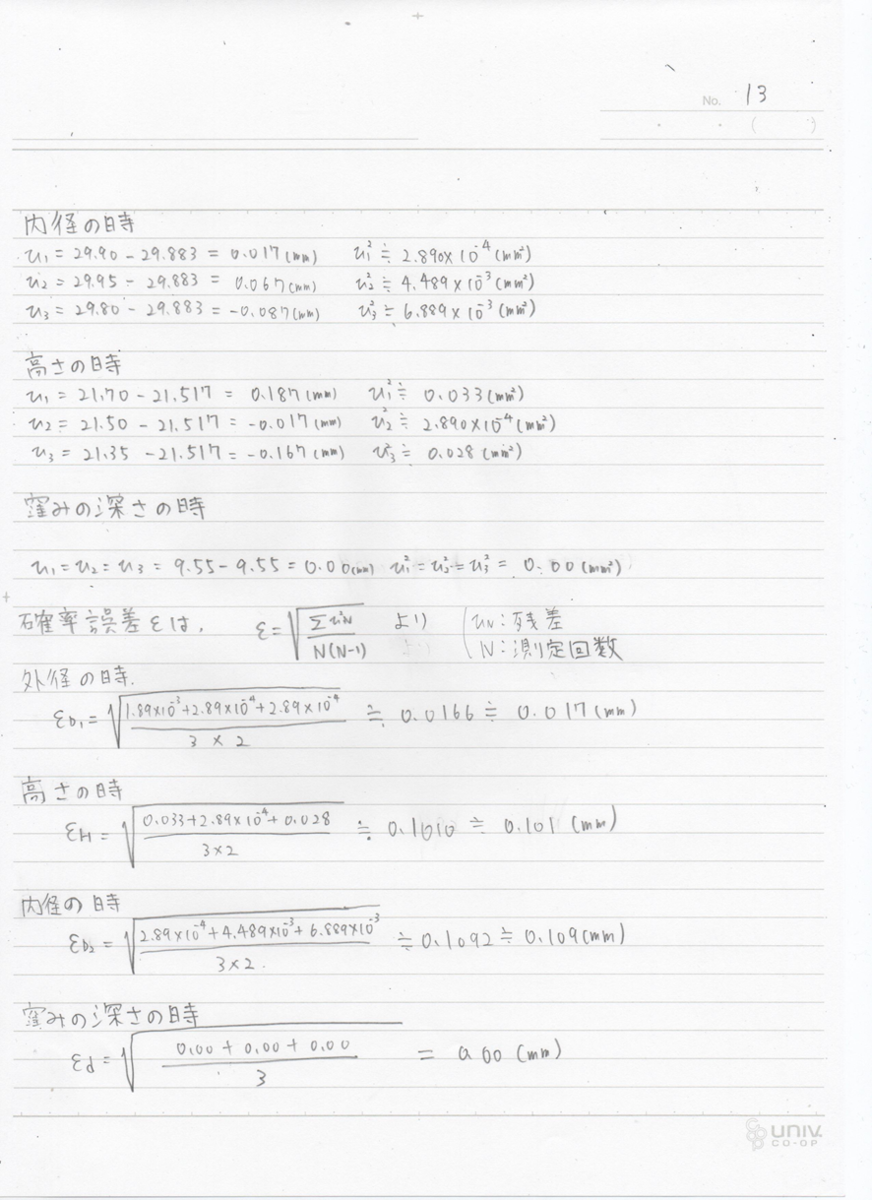 No. 13
内径の時
u₁ = 29.90 - 29.883 = 0.017 (mm) u₁² ≒ 2.890×10⁻⁴ (mm²)
u₂ = 29.95 - 29.883 = 0.067 (mm) u₂² ≒ 4.489×10⁻³ (mm²)
u₃ = 29.80 - 29.883 = -0.087 (mm) u₃² ≒ 6.889×10⁻³ (mm²)
高さの時
u₁ = 21.70 - 21.517 = 0.187 (mm) u₁² ≒ 0.033 (mm²)
u₂ = 21.50 - 21.517 = -0.017 (mm) u₂² ≒ 2.890×10⁻⁴ (mm²)
u₃ = 21.35 - 21.517 = -0.167 (mm) u₃² ≒ 0.028 (mm²)
窪みの深さの時
u₁ = u₂ = u₃ = 9.55 - 9.55 = 0.00 (mm) u₁² = u₂² = u₃² = 0.00 (mm²)
確率誤差εは, ε = √(Σu²N / N(N-1)) より (uN:残差
N:測定回数
外径の時.
εD₁ = √((1.89×10⁻³ + 2.89×10⁻⁴ + 2.89×10⁻⁴) / 3×2) ≒ 0.0166 ≒ 0.017 (mm)
高さの時
εH = √((0.033 + 2.89×10⁻⁴ + 0.028) / 3×2) ≒ 0.1010 ≒ 0.101 (mm)
内径の時
εD₂ = √((2.89×10⁻⁴ + 4.489×10⁻³ + 6.889×10⁻³) / 3×2.) ≒ 0.1092 ≒ 0.109 (mm)
窪みの深さの時
εd = √((0.00 + 0.00 + 0.00) / 3) = 0.00 (mm)
UNIV.
CO-OP